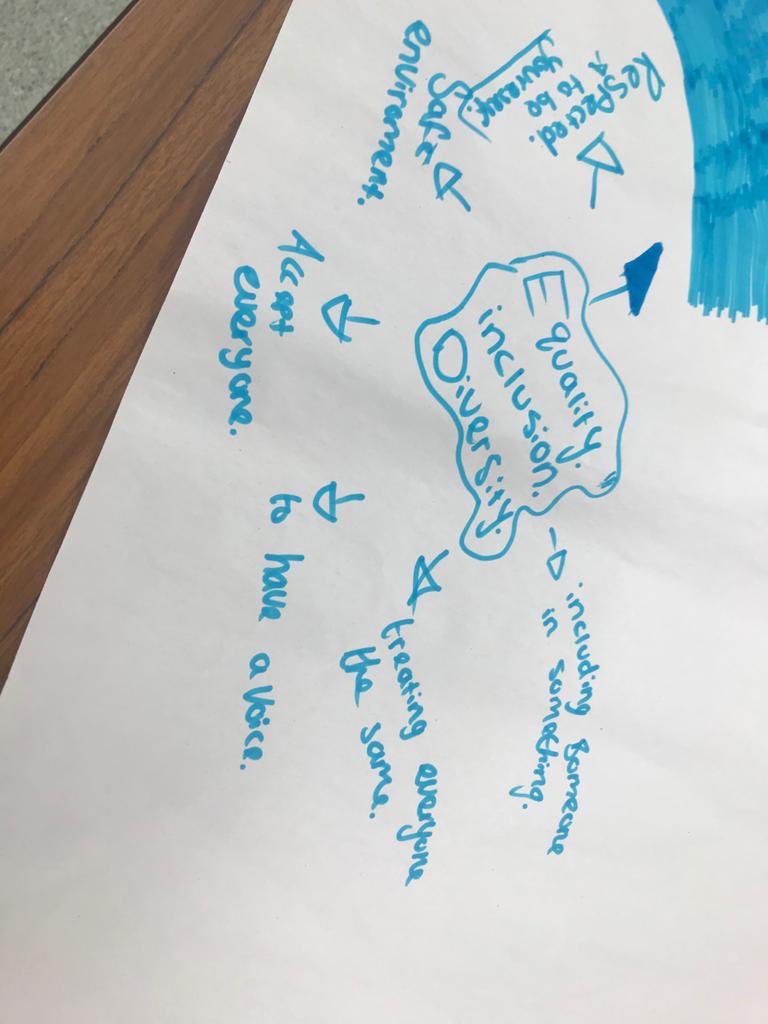 Equality.
inclusion.
Diversity.
including someone
in something.
treating everyone
the same.
to have a voice.
Accept
everyone.
Safe
enviroment.
Respected.
to be
yourself.